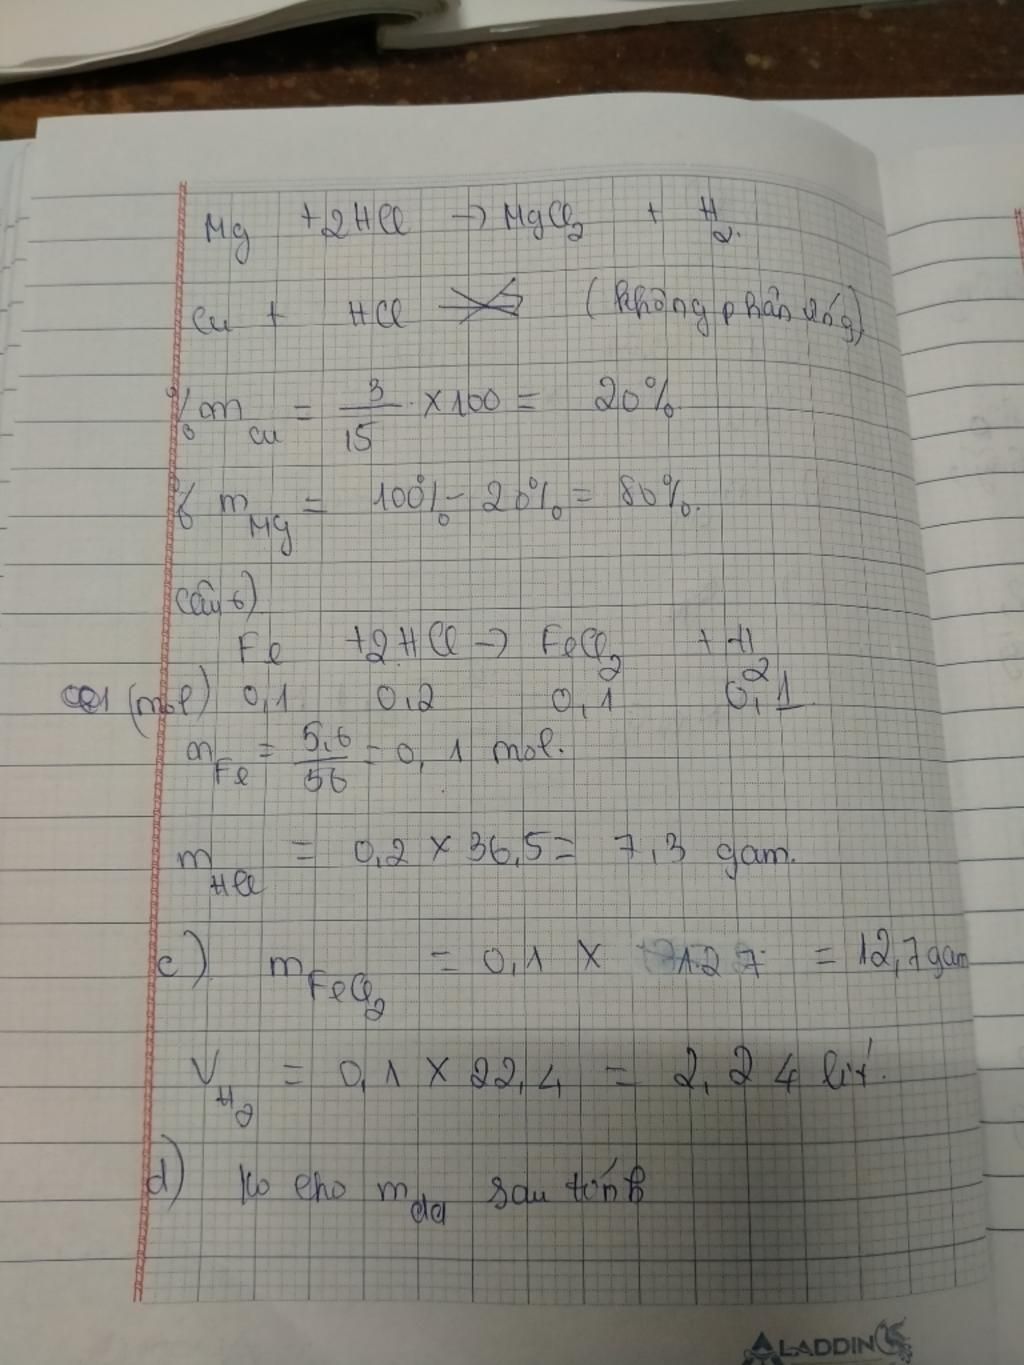 Mg + 2HCl → MgCl₂ + H₂.
Cu + HCl (không phản ứng)
% m Cu = 3/15 × 100 = 20%
% m Mg = 100% - 20% = 80%.
Câu 6)
Fe + 2HCl → FeCl₂ + H₂
(mol) 0,1 0,2 0,1 0,1
n Fe = 5,6/56 = 0,1 mol.
m HCl = 0,2 × 36,5 = 7,3 gam.
c) m FeCl₂ = 0,1 × 127 = 12,7 gam
V H₂ = 0,1 × 22,4 = 2,24 lít.
d) Ko cho m dd sau tính
ALADDIN